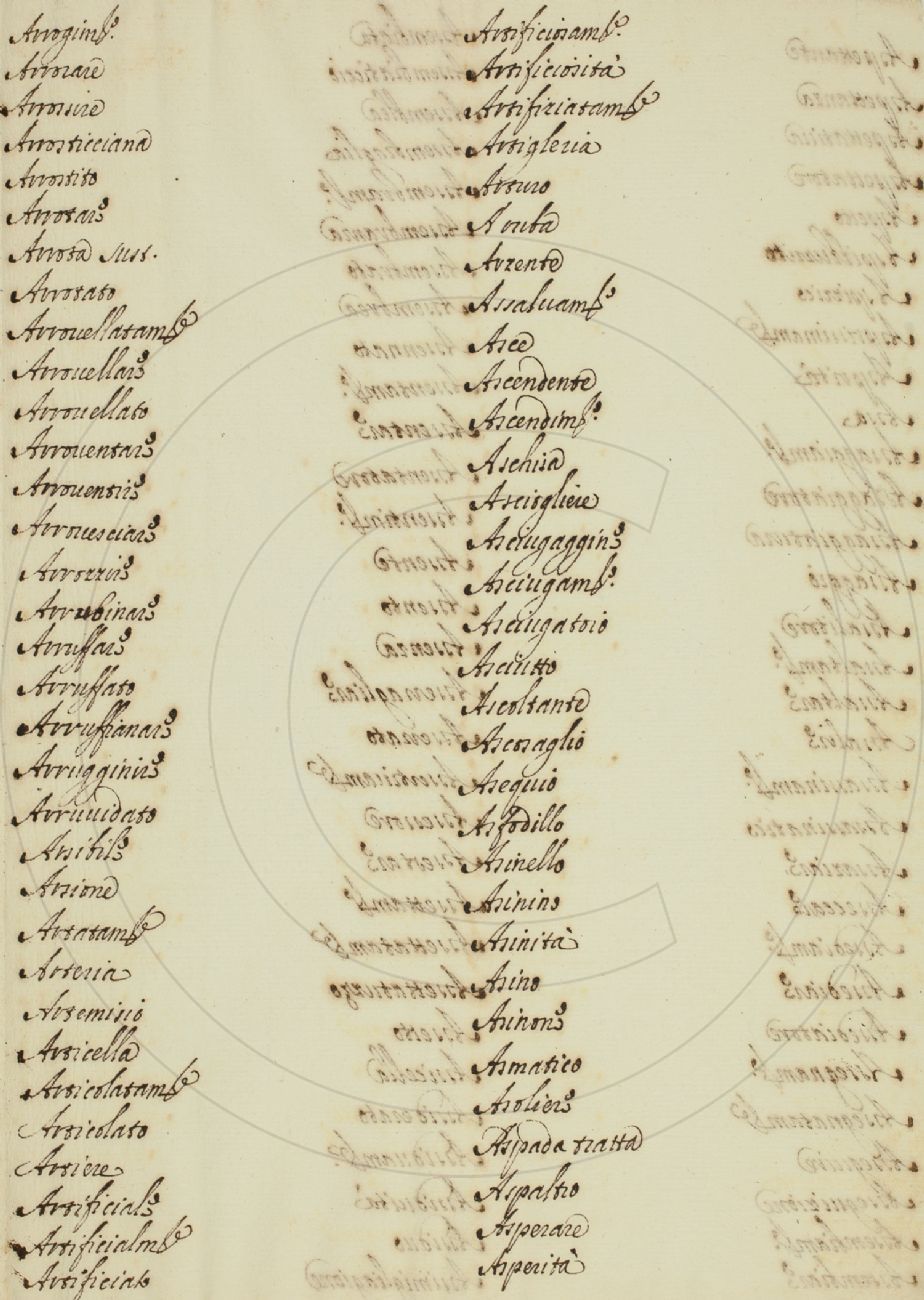 Arrogim.to
Arrorare
Arrossire
Arrosticciana
Arrostito
Arrotare
Arrota sust.
Arrotato
Arrouellatam.te
Arrouellare
Arrouellato
Arrouentare
Arrouentire
Arrouesciare
Arrozzire
Arrubinare
Arruffare
Arruffato
Arruffianare
Arrugginire
Arruuidato
Arsibile
Arsione
Artatam.te
Arteria
Artemisio
Articella
Articolatam.te
Articolato
Artiere
Artificiale
Artificialm.te
Artificiato
Artificiosam.to
Artificiosità
Artifiziatam.te
Artigleria
Arturo
Aruba
Arzente
Assaluam.to
Asce
Ascendente
Ascendim.to
Aschisa
Asciogliere
Asciugaggine
Asciugam.to
Asciugatoio
Asciutto
Ascoltante
Ascosaglio
Asequio
Asfodillo
Asinello
Asinino
Asinità
Asino
Asinone
Asmatico
Asoliere
Aspada tratta
Aspaltio
Asperare
Asperità